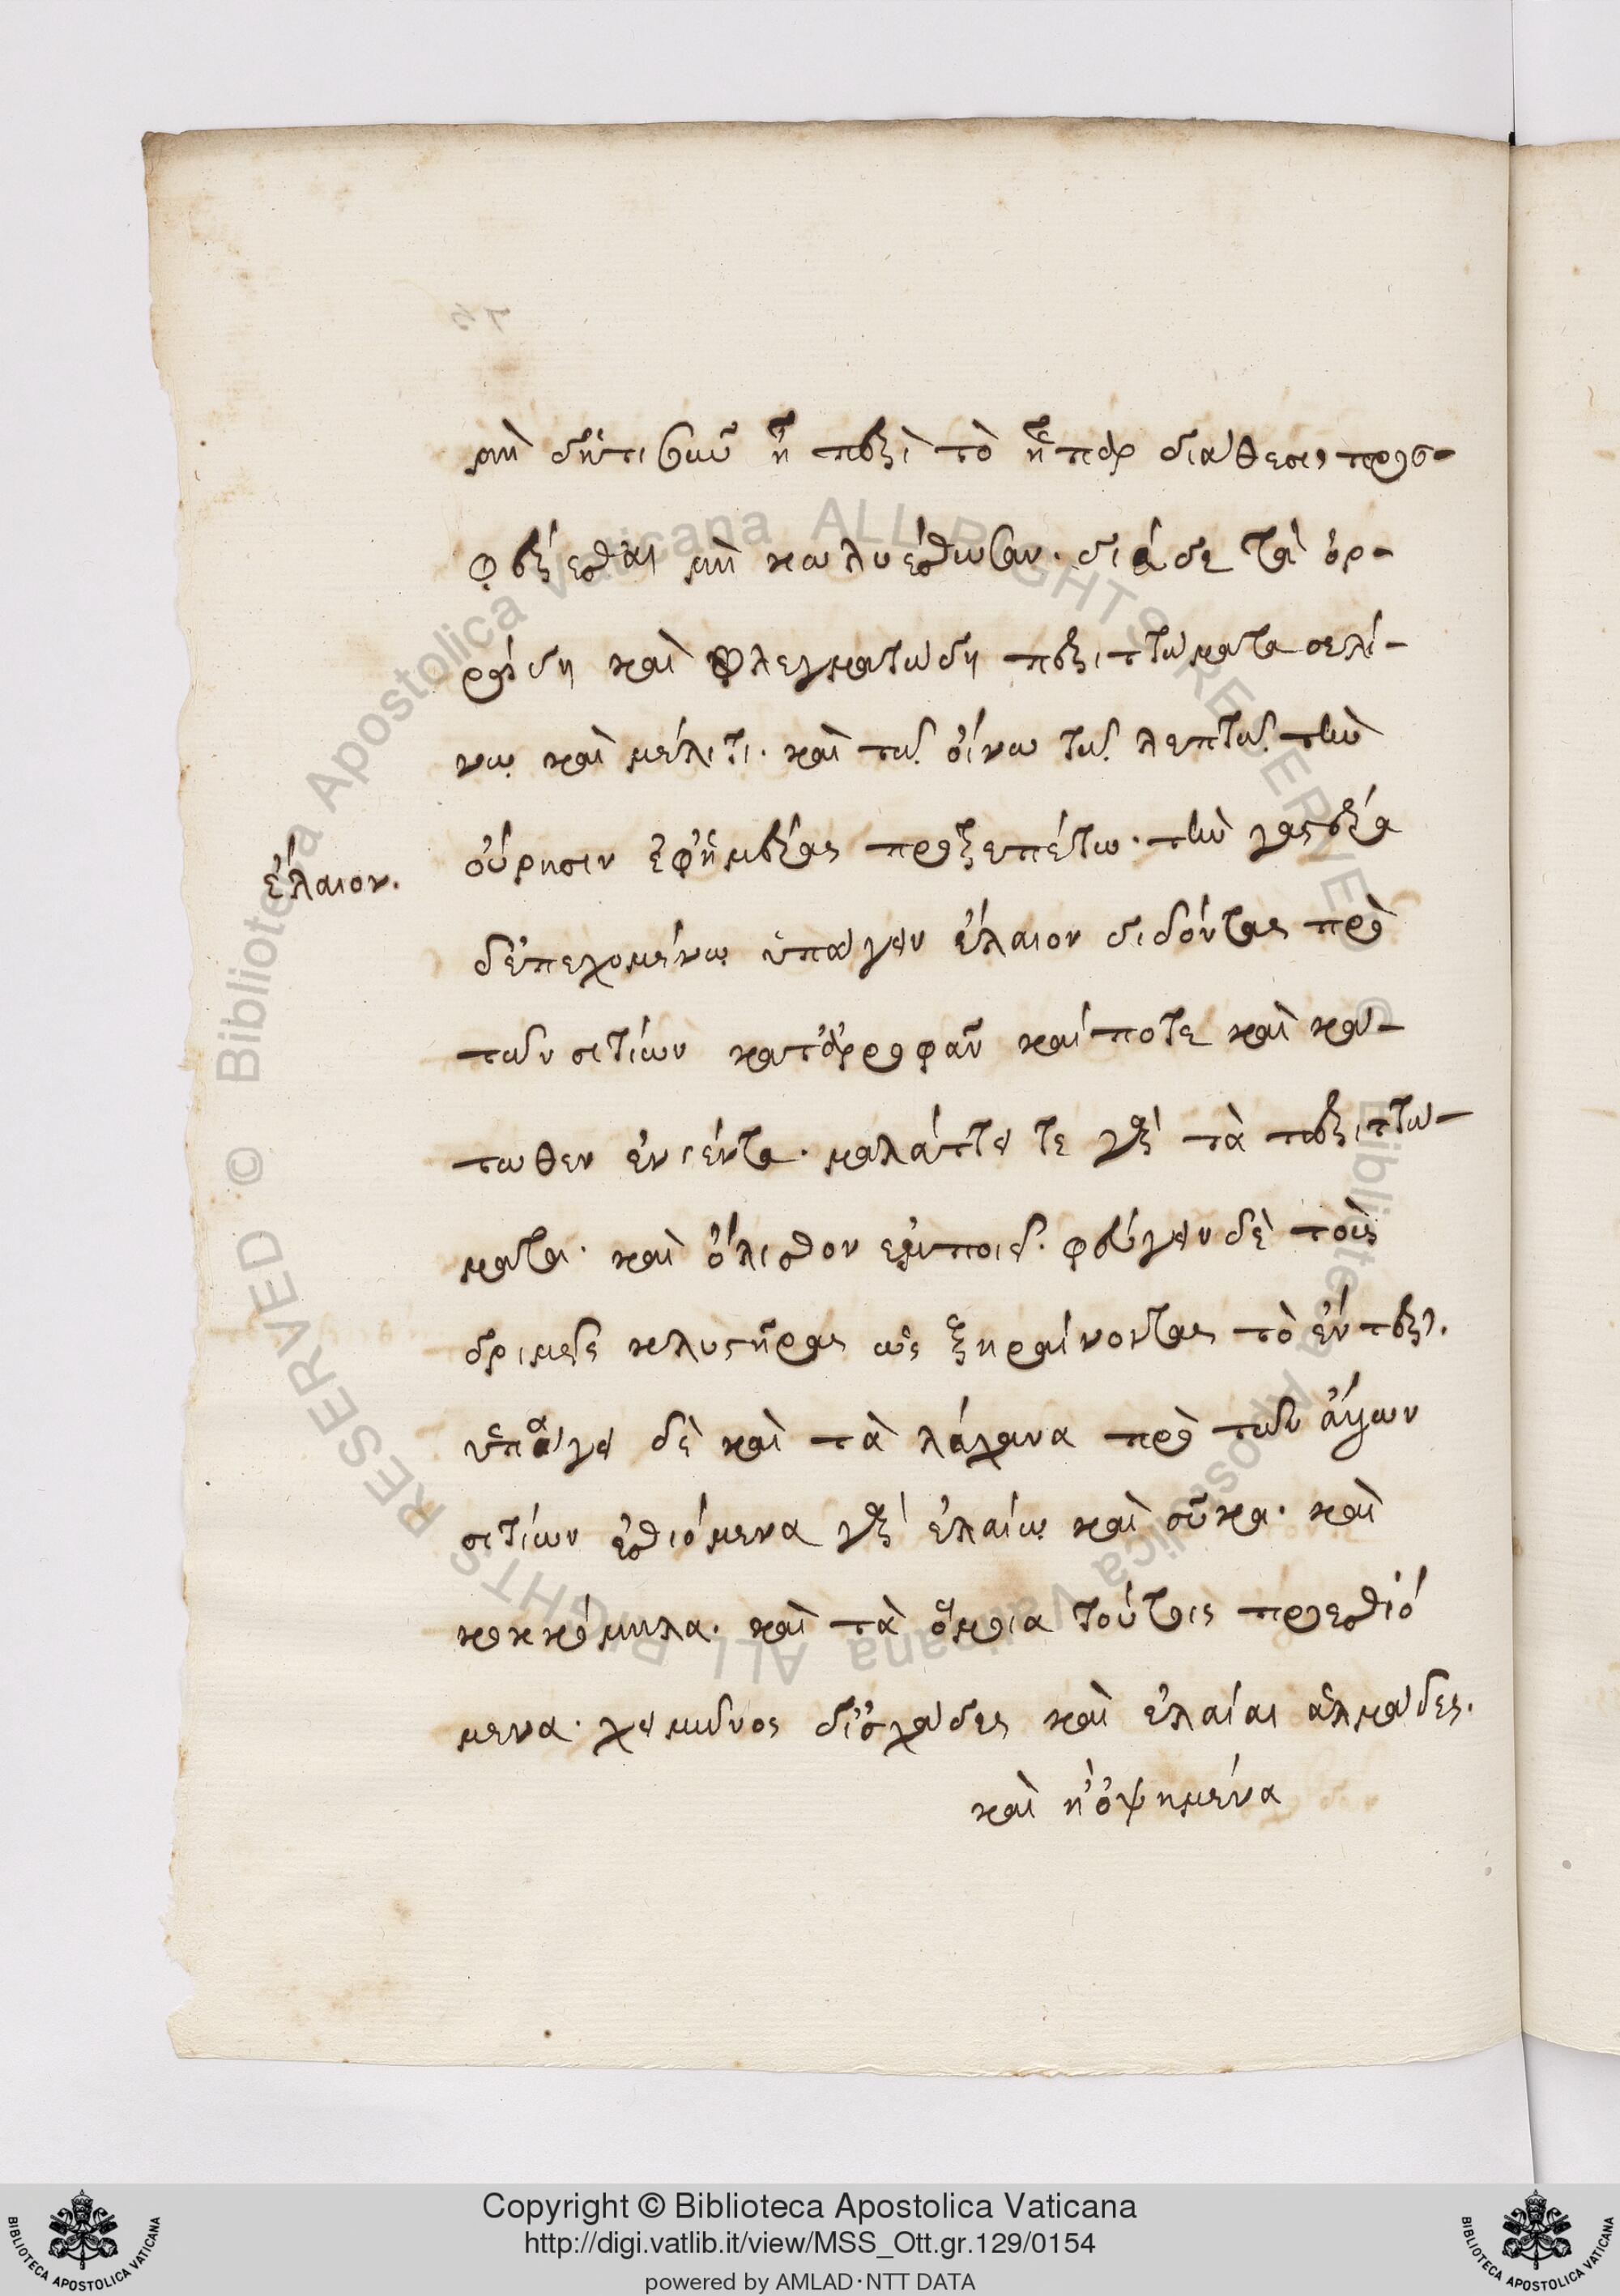 μὴ δήτις οὖν ᾖ περὶ τὸ ἧπαρ διάθεσις προσ-
φέρεσθαι μὴ κωλυέσθωσαν. διὰ δὲ τὰ ὀρ-
ρώδη καὶ φλεγματώδη περιττώματα σελί-
νῳ καὶ μέλιτι. καὶ τῷ οἴνῳ τῷ λεπτῷ. τὴν
οὔρησιν ἐφ ἡμέρας προτρεπέτω. τὴν γαστέρα
ἔλαιον.
δ ἐπεχομένῳ ὑπάγειν ἔλαιον διδόντας πρὸ
τῶν σιτίων καταρροφᾶν καί ποτε καὶ κά-
τωθεν ἐνιέντα. μαλάττει τε γὰρ τὰ περιττώ-
ματα. καὶ ὄλισθον ἐμποιεῖ. φεύγειν δὲ τοὺς
δριμεῖς κλυστῆρας ὡς ξηραίνοντας τὸ ἔντερον.
ὑπάγει δὲ καὶ τὰ λάχανα πρὸ τῶν ἄλλων
σιτίων ἐσθιόμενα μετ ἐλαίῳ καὶ σῦκα. καὶ
κοκκύμηλα. καὶ τὰ ὅμοια τούτοις προεσθιό
μενα. χειμῶνος δ ἰσχάδες καὶ ἐλαῖαι ἁλμάδες.
καὶ ἡ ὀψημένα
Copyright © Biblioteca Apostolica Vaticana
http://digi.vatlib.it/view/MSS_Ott.gr.129/0154
powered by AMLAD·NTT DATA
BIBLIOTECA APOSTOLICA VATICANA
BIBLIOTECA APOSTOLICA VATICANA